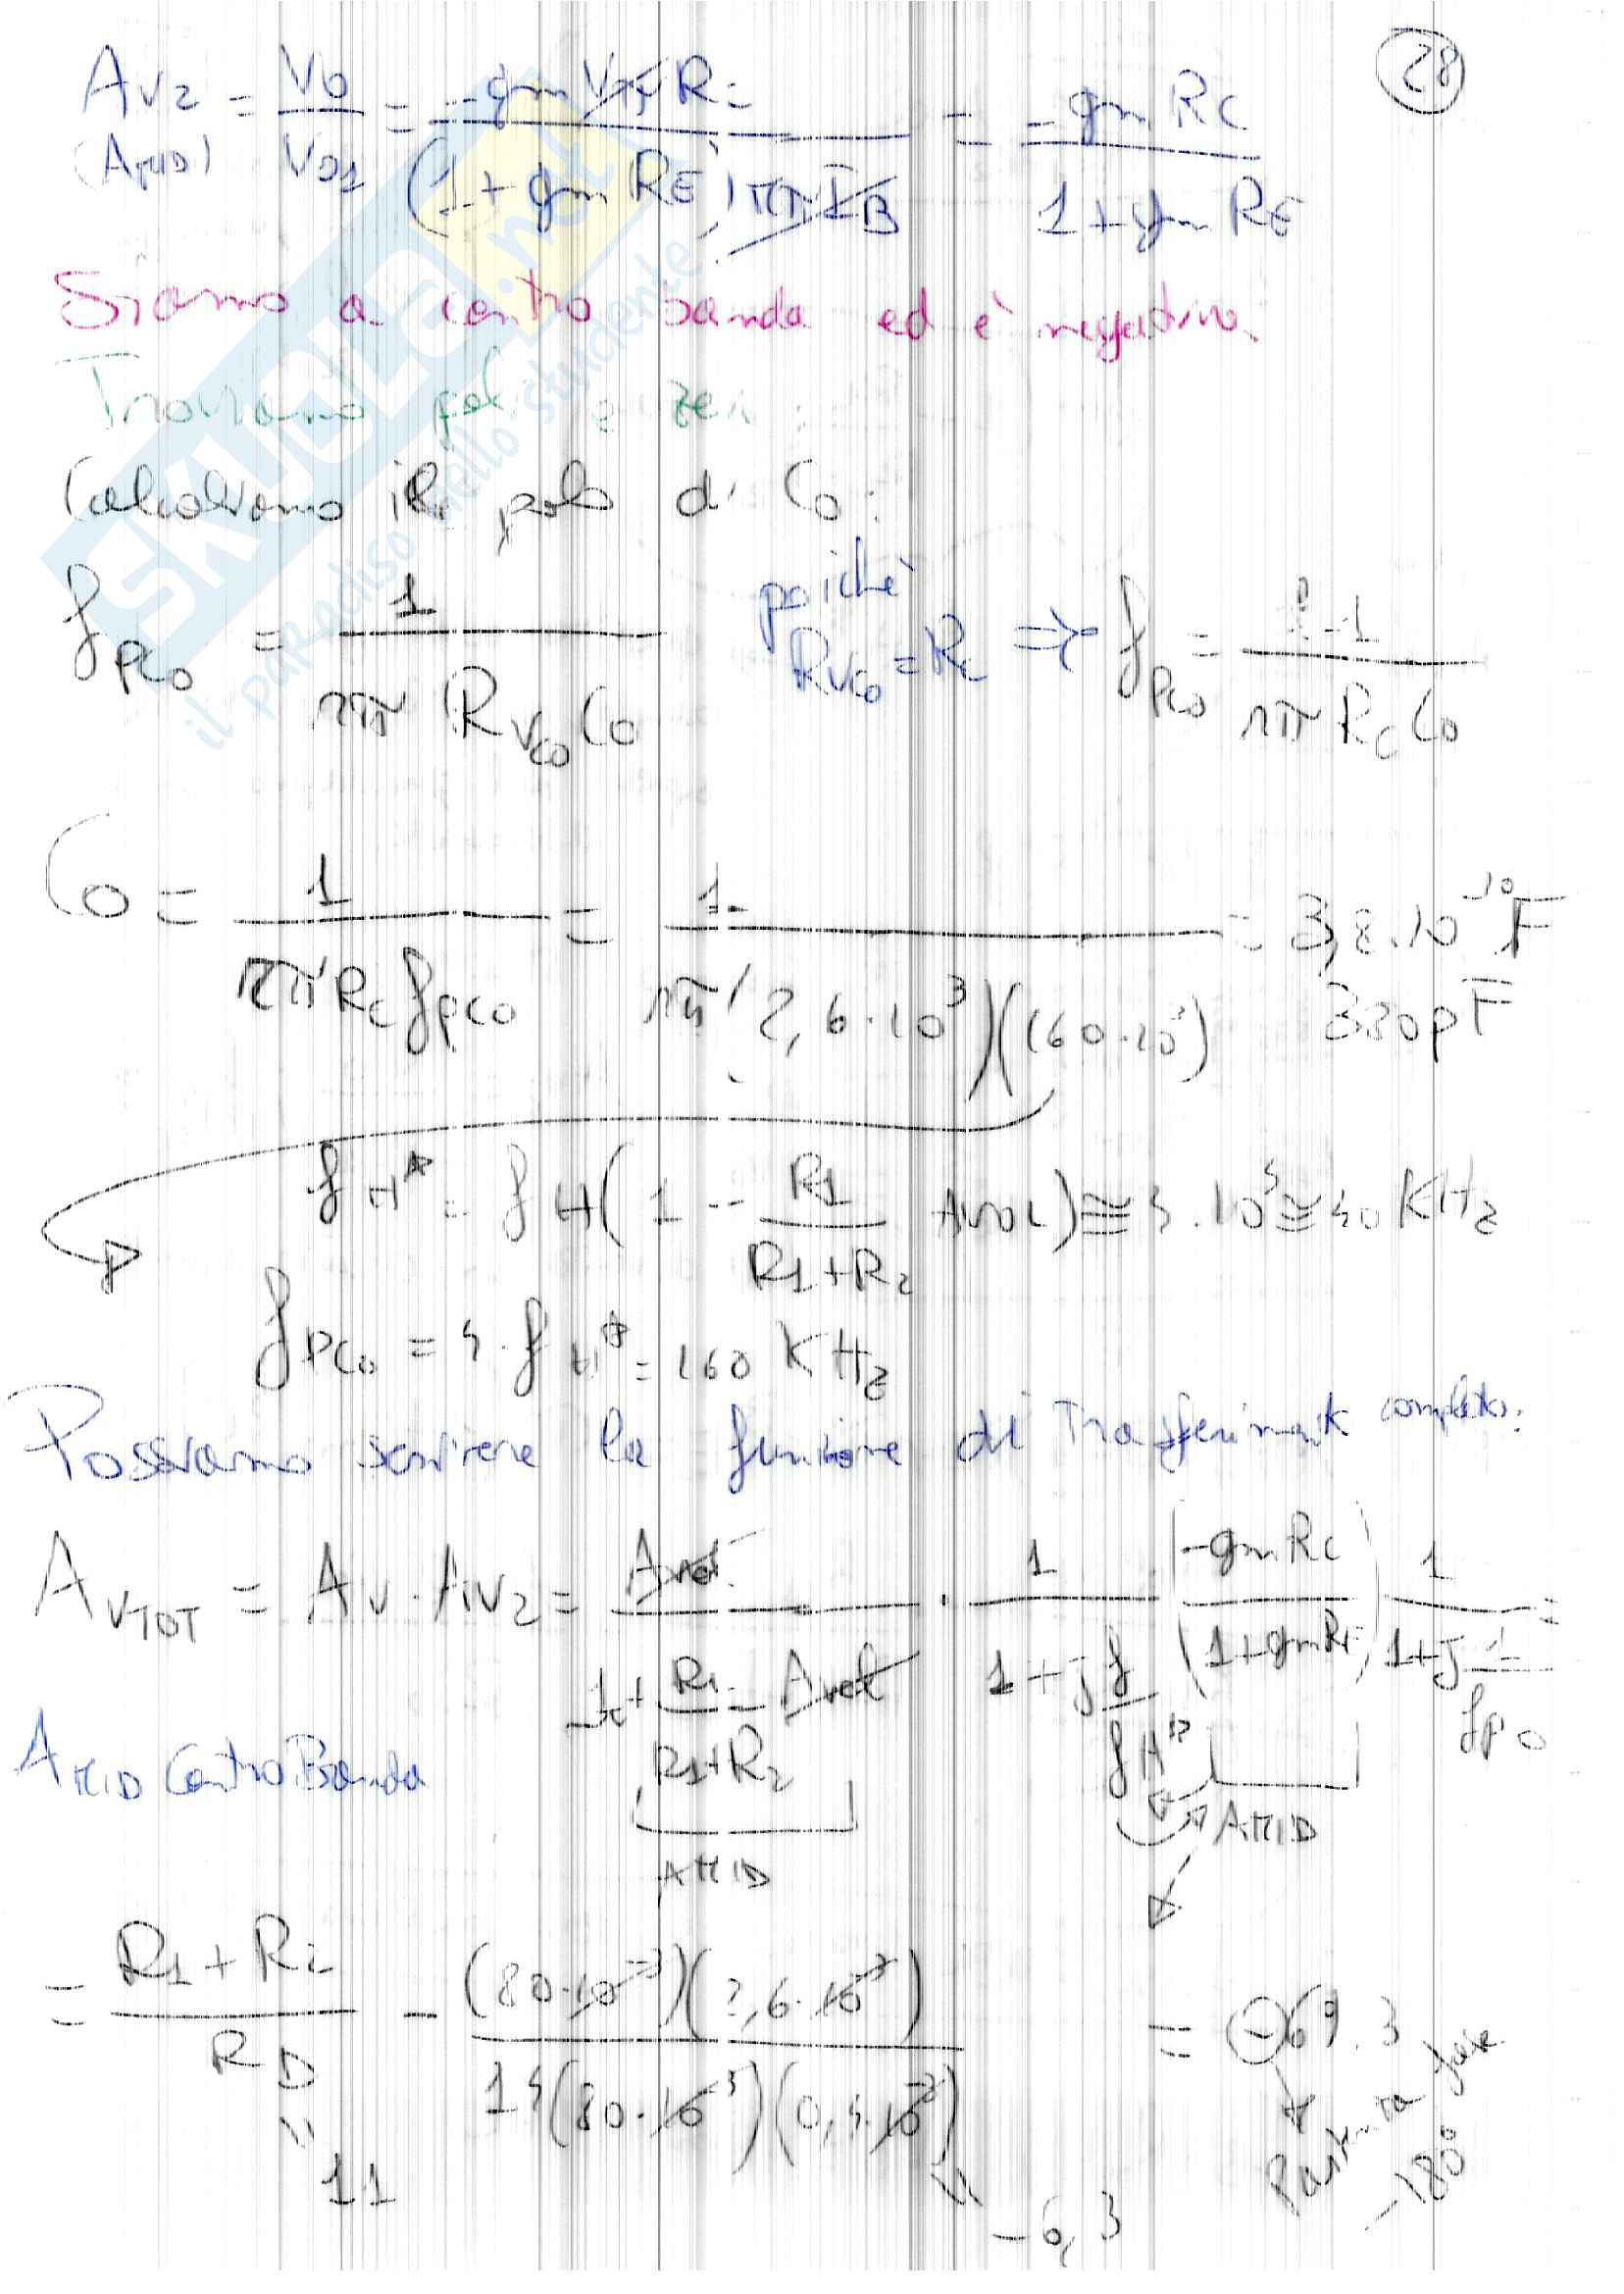 28
Av2 = Vo / Vo1 = -gm Vπ Rc / (1 + gm RE) rπ IB = -gm RC / 1 + gm RE
(AMID)
Siamo a centro banda ed è negativo.
Troviamo poli e zeri
Calcoliamo il polo di Co:
fPCo = 1 / 2π RVCo Co poiché RVCo = Rc ⇒ fPCo = 1 / 2π RC Co
Co = 1 / 2π Rc fPCo = 1 / 2π (2,6 · 10³)(160 · 10³) = 3,8 · 10⁻¹⁰ F
380 pF
fH* = fH (1 - R1 / R1+R2 AVOL) ≅ 4 · 10⁴ ≅ 40 KHz
fPCo = 4 · fH* = 160 KHz
Possiamo scrivere la funzione di Trasferimento completa:
AVTOT = Av · Av2 = Avol / 1 + R1 / R1+R2 Avol · 1 / 1 + j f / fH* (-gm Rc / 1 + gm RE) 1 / 1 + j f / fPo =
AMID Centro Banda
AMID
AMID
= R1 + R2 / RD - (80 · 10⁻³)(2,6 · 10³) / 1 + (80 · 10⁻³)(0,4 · 10³) = -69.3
11
-6,3
-180°
SKUOLA.net
il paradiso dello studente